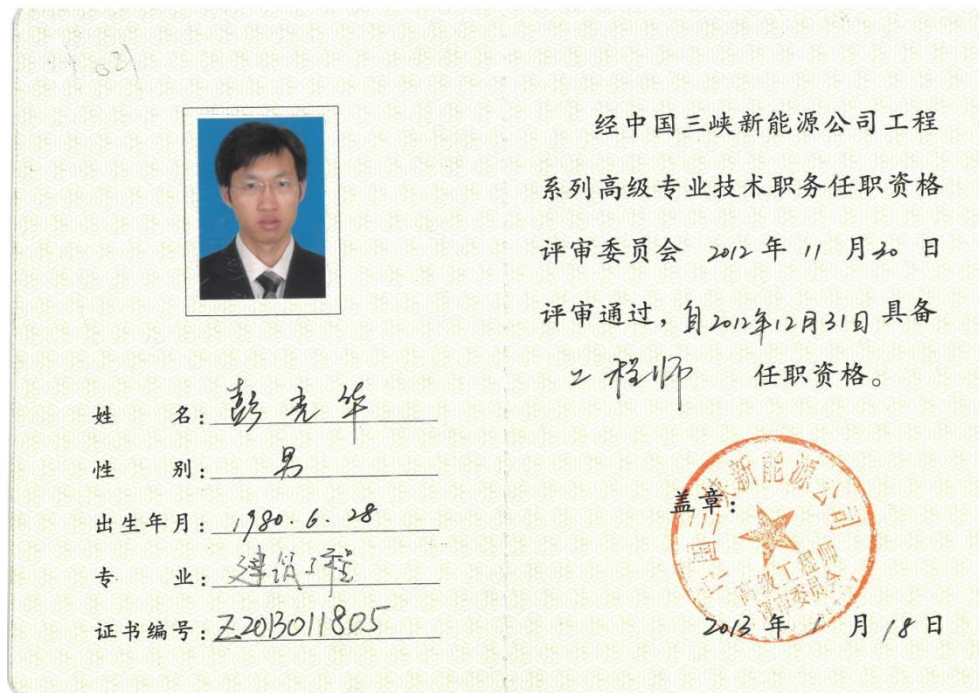 姓 名：彭光华
性 别：男
出生年月：1980.6.28
专 业：建筑工程
证书编号：Z2013011805
经中国三峡新能源公司工程
系列高级专业技术职务任职资格
评审委员会 2012 年 11 月 30 日
评审通过，自2012年12月31日具备
工程师 任职资格。
盖章：
中国三峡新能源公司
高级工程师
评审委员会
2013 年 1 月 18 日